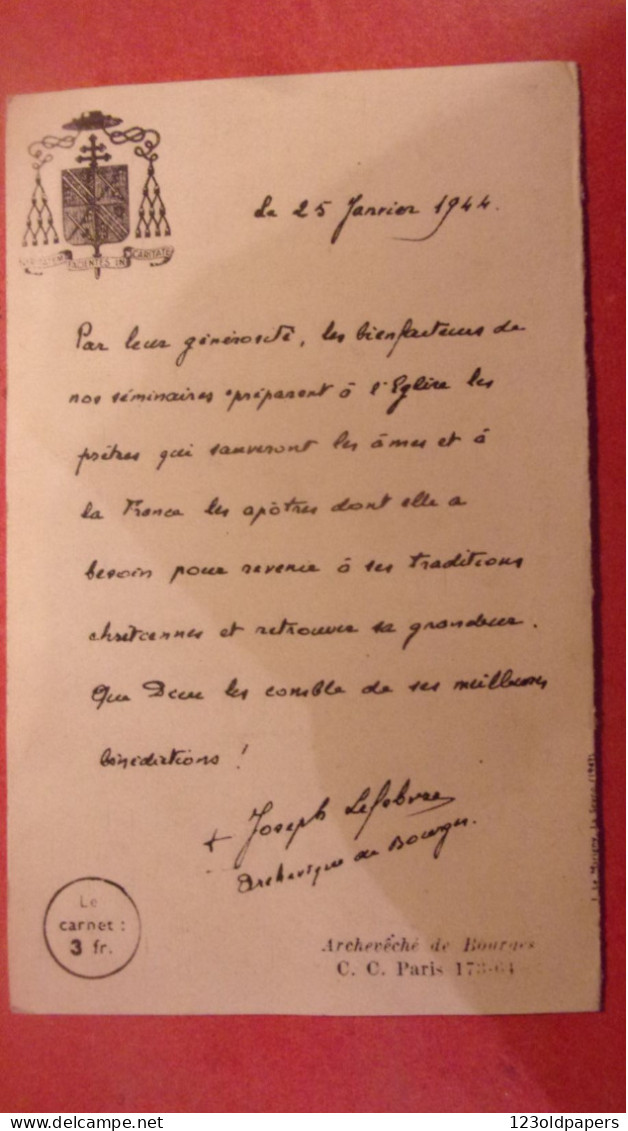 Le 25 Janvier 1944.
VERITATEM FACIENTES IN CARITATE
Par leur générosité, les bienfaiteurs de
nos séminaires préparent à l'Eglise les
prêtres qui sauveront les âmes et à
la France les apôtres dont elle a
besoin pour revenir à ses traditions
chrétiennes et retrouver sa grandeur.
Que Dieu les comble de ses meilleures
bénédictions !
+ Joseph Lefebvre
Archevêque de Bourges.
Le
carnet :
3 fr.
Archevêché de Bourges
C. C. Paris 178-64
123oldpapers